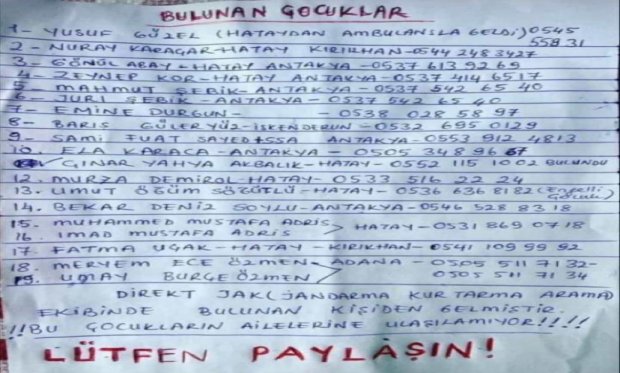 BULUNAN ÇOCUKLAR
1- YUSUF GÜZEL (HATAYDAN AMBULANSLA GELDİ) 0545
558 31
2- NURAY KARAÇAR-HATAY KIRIKHAN-0544 248 3427
3- GÖNÜL ABAY-HATAY ANTAKYA-0537 613 92 69
4- ZEYNEP KOR-HATAY ANTAKYA-0537 414 6517
5- MAHMUT ŞEBİK-ANTAKYA-0537 542 65 40
6- JURİ ŞEBİK-ANTAKYA-0537 542 65 40
7- EMİNE DURGUN- -0538 028 58 97
8- BARIŞ GÜLERYÜZ-İSKENDERUN-0532 695 0129
9- SAMİ FUAT SAYED ISSA ANTAKYA-0553 912 4813
10. ELA KARACA-ANTAKYA-0505 348 96 67
ÇINAR YAHYA AKBALIK-HATAY-0552 115 1002 BULUNDU
12. MURZA DEMİROL-HATAY-0533 516 22 24
13. UMUT ÖZÜM SÖZÜTLÜ-HATAY-0536 636 8182 (Engelli Çocuk)
14. BEKAR DENİZ SOYLU-ANTAKYA-0546 528 83 18
15- MUHAMMED MUSTAFA ADRİS
HATAY-0531 869 07 18
16. IMAD MUSTAFA ADRİS
17. FATMA UÇAK-HATAY-KIRIKHAN-0541 109 99 92
18- MERYEM ECE ÖZMEN ADANA-0505 511 71 32-
19. UMAY BURGE ÖZMEN 0505 511 71 34
DİREKT JAK(JANDARMA KURTARMA ARAMA)
EKİBİNDE BULUNAN KİŞİDEN GELMİŞTİR.
!!BU ÇOCUKLARIN AİLELERİNE ULAŞILAMIYOR!!!!
LÜTFEN PAYLAŞIN!